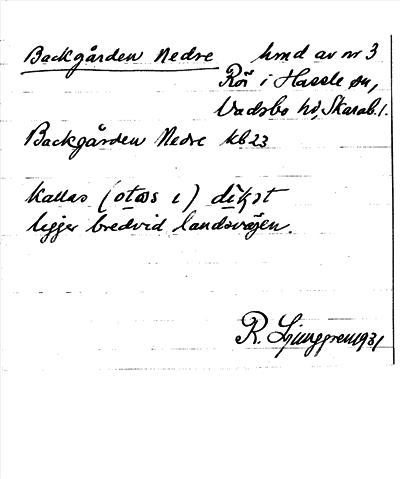 Backgården Nedre hmd av nr 3
Rör i Hassle sn,
Vadsbo hd, Skarab. l.
Backgården Nedre kb 23
kallas (
ligger bredvid landsvägen.
R. Ljunggren 1931